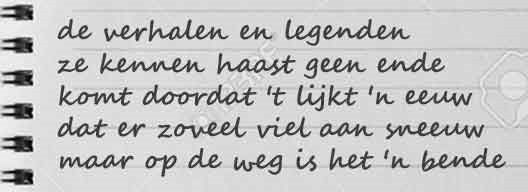 de verhalen en legenden
ze kennen haast geen ende
komt doordat 't lijkt 'n eeuw
dat er zoveel viel aan sneeuw
maar op de weg is het 'n bende